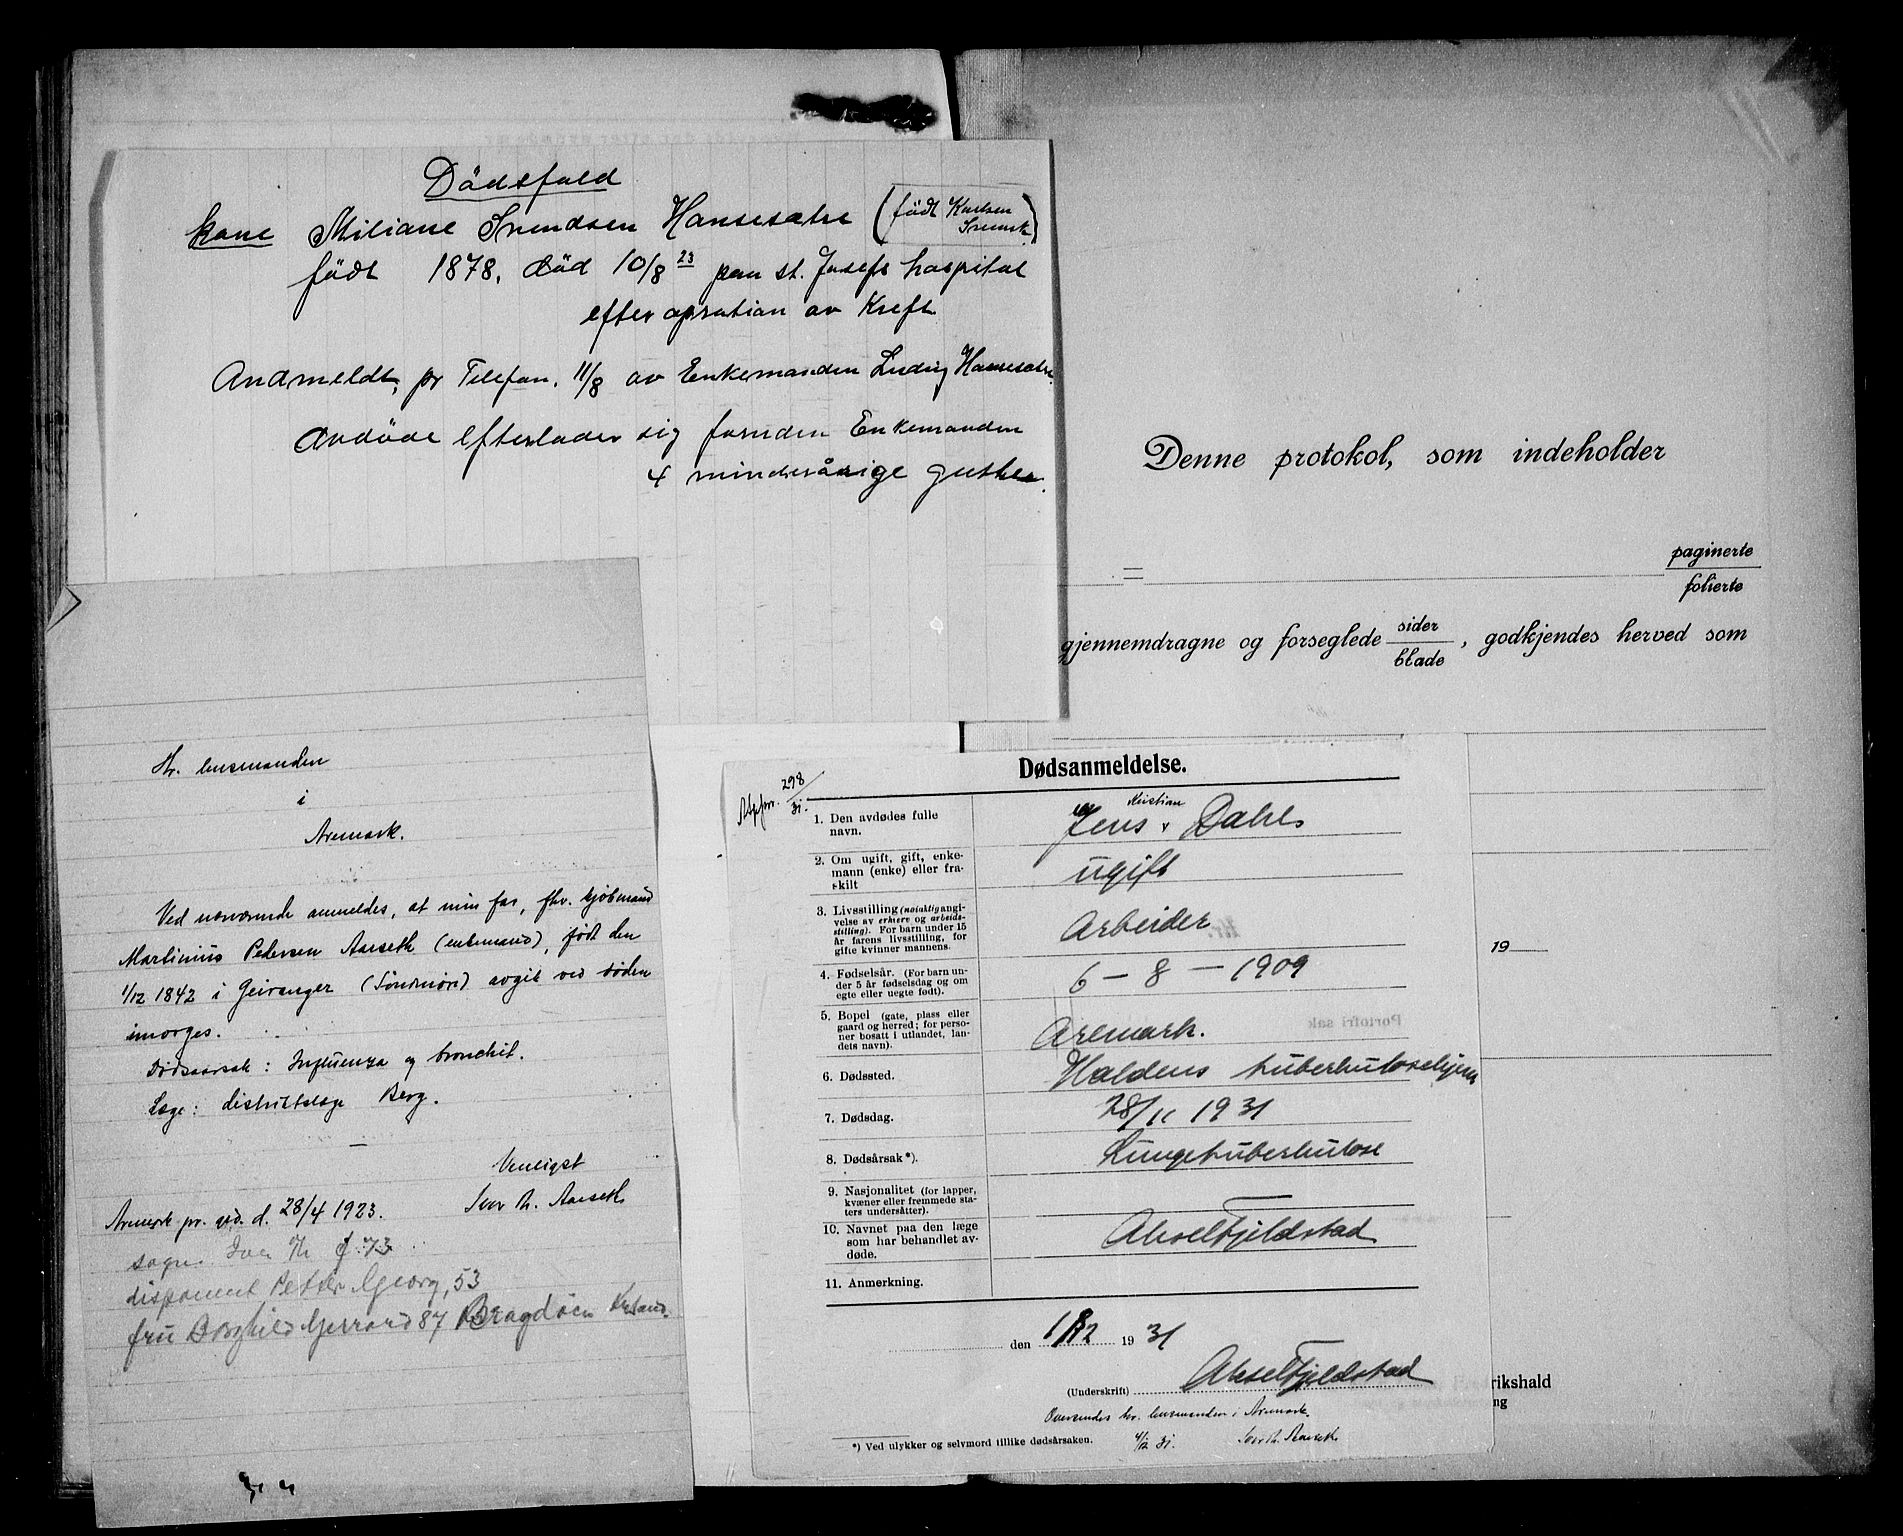 Dödsfald
kone Miliane Svendsen Hansesætre (födt Karlsen
Svensk)
födt 1878, död 10/8 23 paa st. Josefs hospital
efter opration av Kreft
Andmeldt, pr Telefon. 11/8 av Enkemanden Ludvig Hansesætre.
Avdöde efterlader sig foruden Enkemanden
4 mindreårige gutter.
Denne protokol, som indeholder
=
paginerte
folierte
gjennemdragne og forseglede sider
blade, godkjendes herved som
19
Hr. lensmanden
i
Aremark.
Ved nærværende anmeldes, at min far, fhv. kjøbmand
Martinius Pedersen Aarseth (enkemand), født den
1/12 1842 i Geiranger (Søndmøre) avgik ved døden
imorges.
Dødsaarsak: Influenza og bronchit.
Læge: distriktslæge Berg.
Venligst
Aremark pr. grd. d. 28/4 1923.
Ivar Th. Aarseth
sogn. Ivar Th f. 73
disponent Petter Georg, 53
fru Borghild Gerrard 87 Bragdøen Krsand.
Dødsanmeldelse.
298
31.
1. Den avdødes fulle
navn.
Jens Kristian Dahl
2. Om ugift, gift, enke-
mann (enke) eller fra-
skilt
ugift
3. Livsstilling (nøiaktig angi-
velse av erhverv og arbeids-
stilling). For barn under 15
år farens livsstilling, for
gifte kvinner mannens.
Arbeider
4. Fødselsår. (For barn un-
der 5 år fødselsdag og om
egte eller uegte født).
6 - 8 - 1909
5. Bopel (gate, plass eller
gaard og herred; for perso-
ner bosatt i utlandet, lan-
dets navn).
Aremark.
Portofri sak
6. Dødssted.
Haldens tuberkulosehjem
7. Dødsdag.
28/11 1931
8. Dødsårsak*).
Lungetuberkulose
9. Nasjonalitet (for lapper,
kvæner eller fremmede sta-
ters undersåtter).
10. Navnet paa den læge
som har behandlet av-
døde.
Aksel Fjeldstad
11. Anmerkning.
den 1/12 1931
(Underskrift) Aksel Fjeldstad
rikshald
ng
Oversendes hr. lensmanden i Aremark.
*) Ved ulykker og selvmord tillike dødsårsaken.
4/12 31. Ivar Th. Aarseth